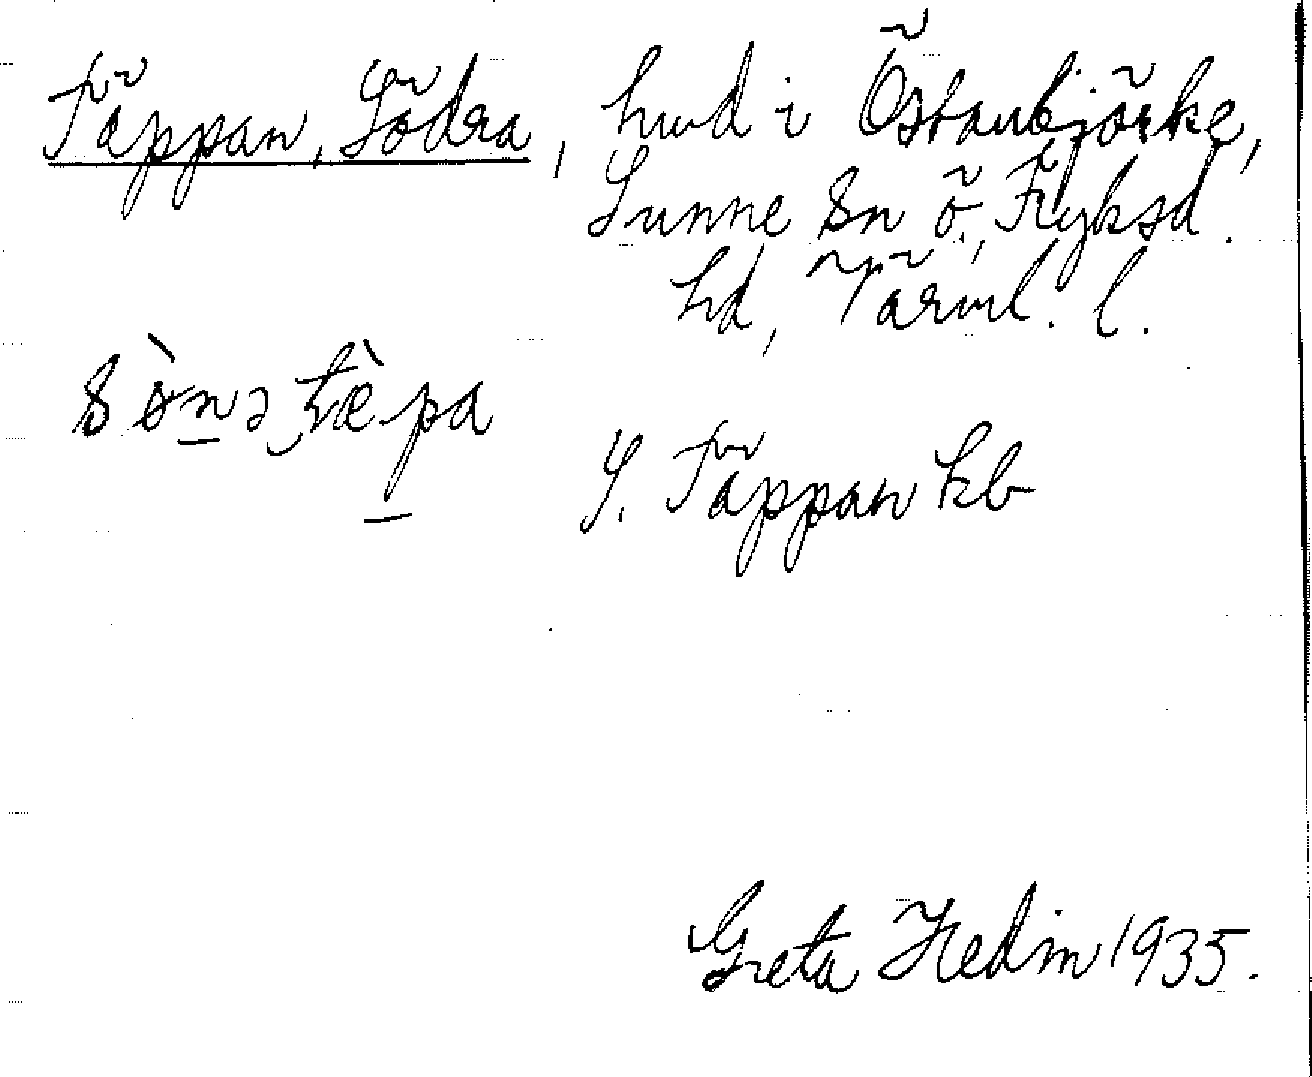 Täppan, Södra, hmd i Östanbjörke,
Sunne Sn Ö. Fryksd.
hd, Värml. l.
sö̀nə tæ̀pa
S. Täppan kb
Greta Hedin 1935.